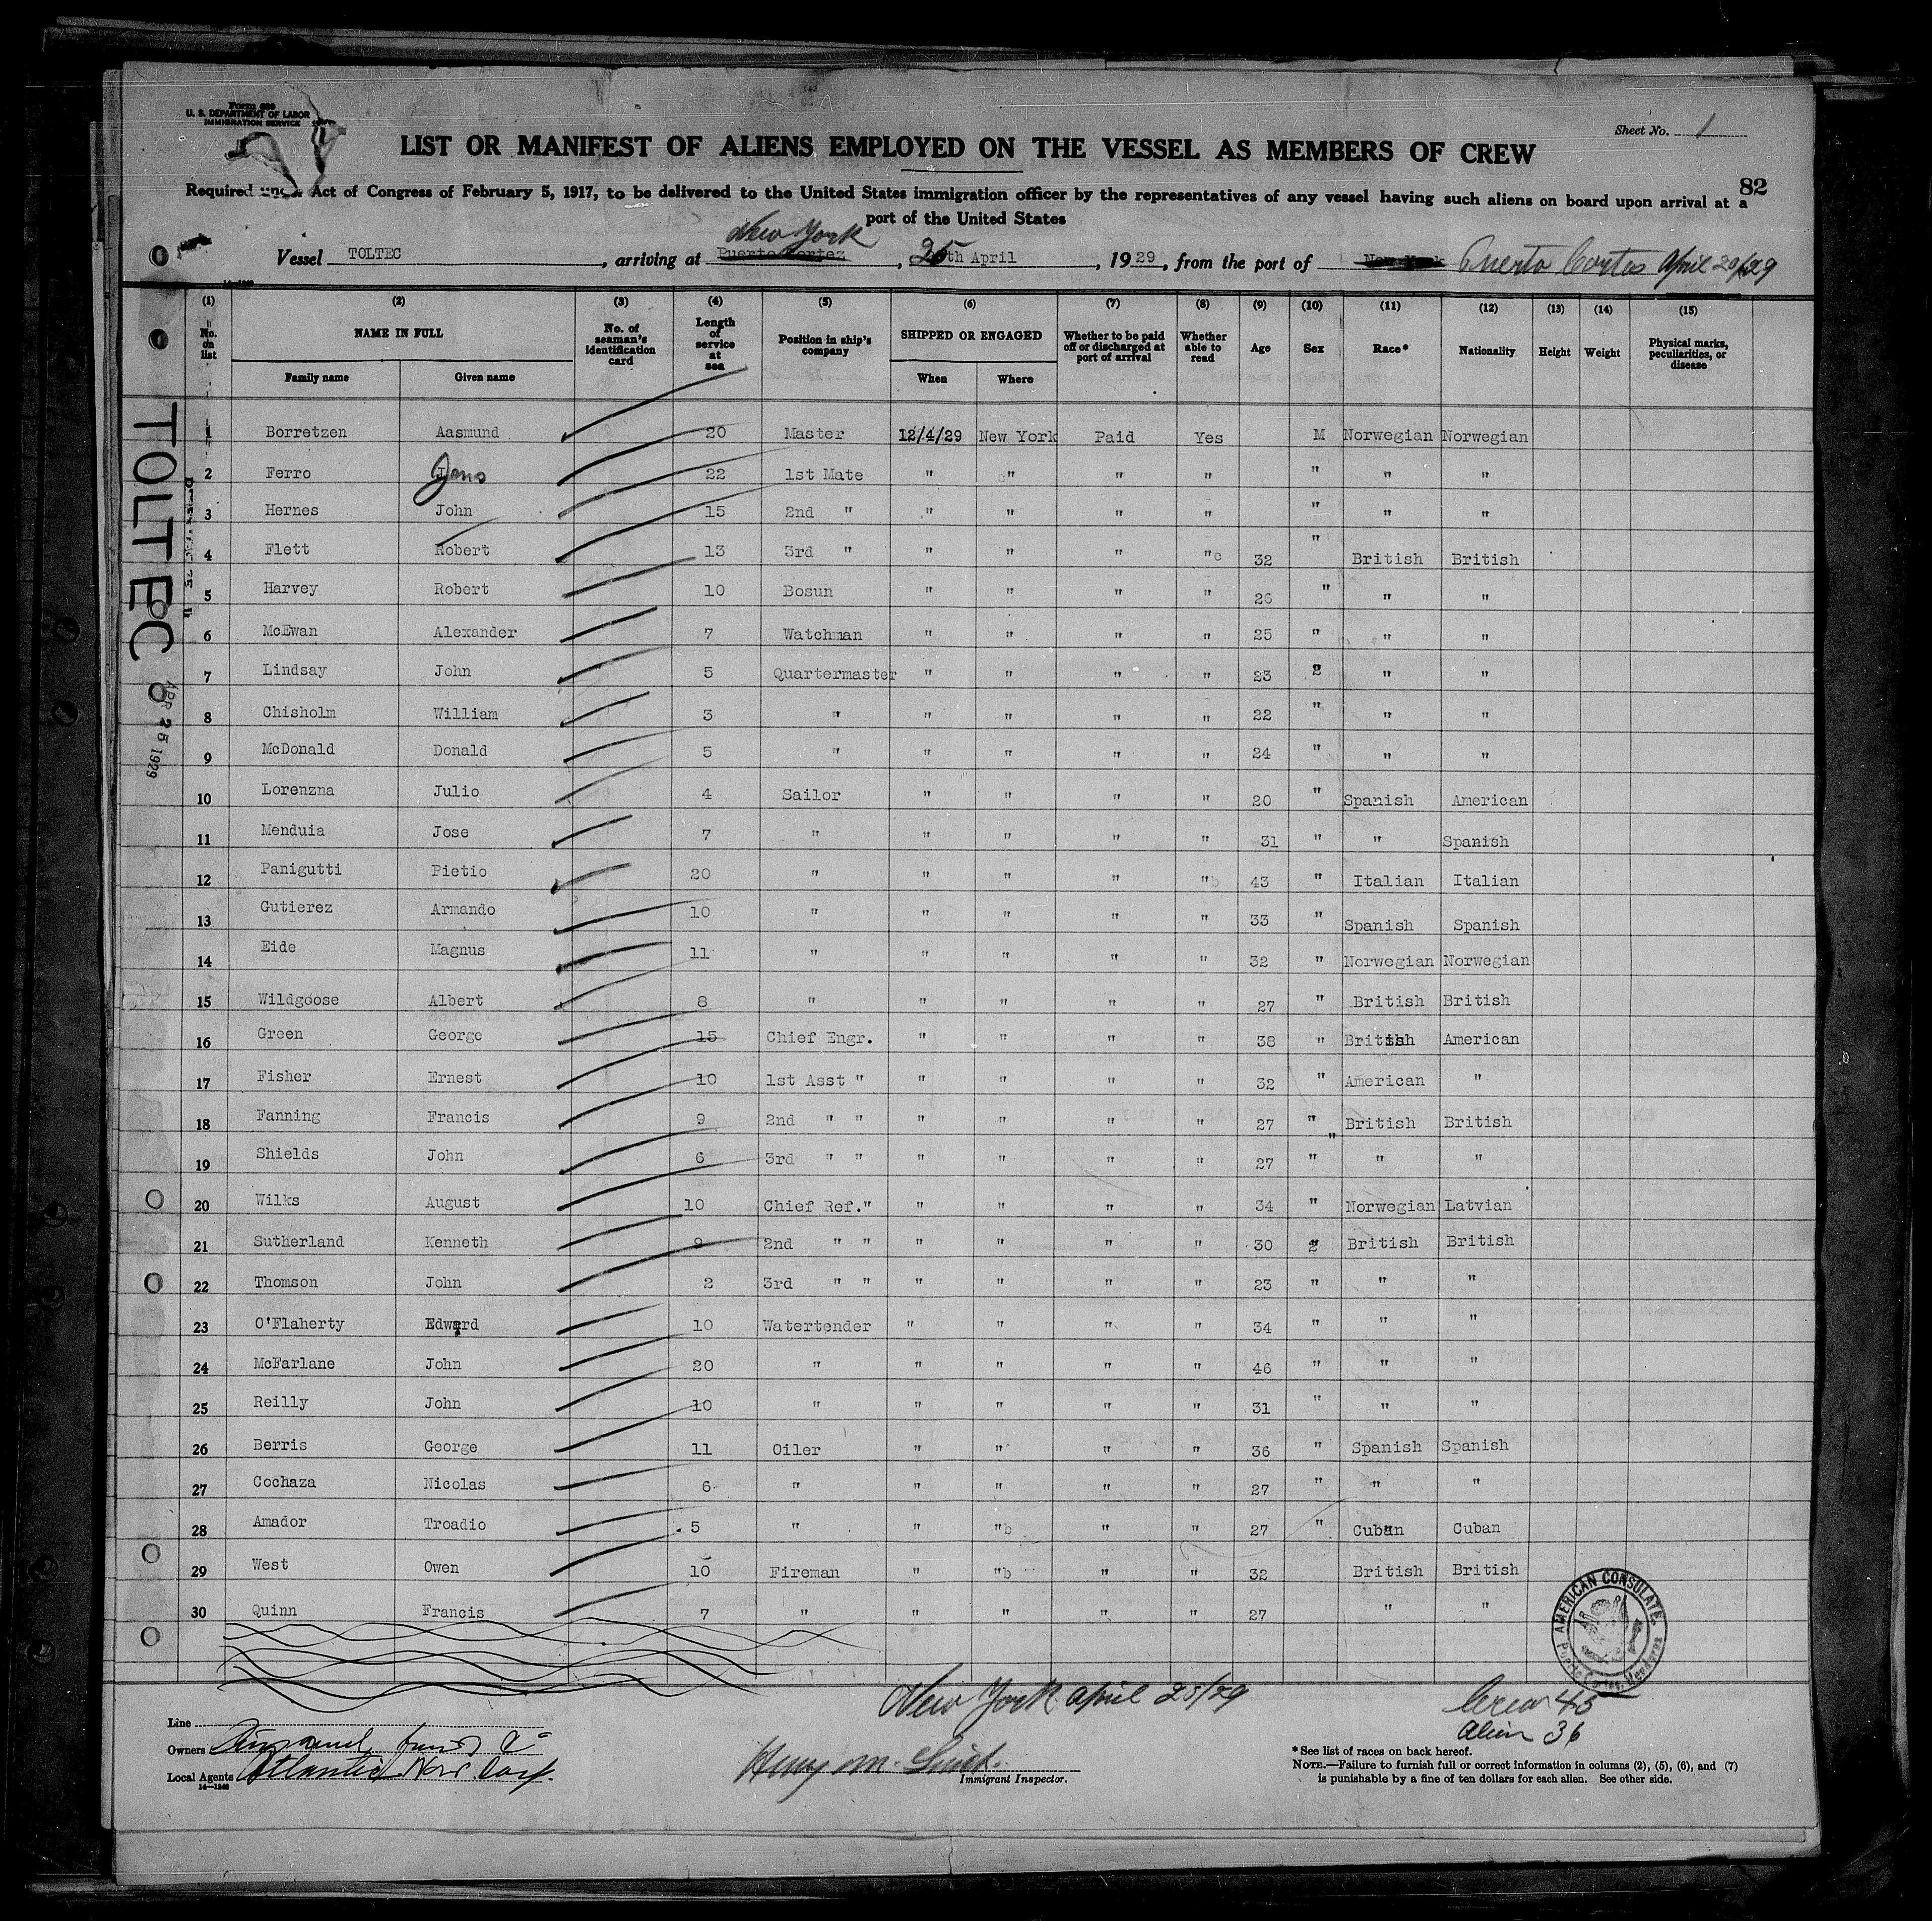 Form 689
U. S. DEPARTMENT OF LABOR
IMMIGRATION SERVICE
Sheet No. 1
LIST OR MANIFEST OF ALIENS EMPLOYED ON THE VESSEL AS MEMBERS OF CREW
82
Required under Act of Congress of February 5, 1917, to be delivered to the United States immigration officer by the representatives of any vessel having such aliens on board upon arrival at a
port of the United States
New York
Vessel TOLTEC, arriving at Puerto Cortez, 25th April, 1929, from the port of New York Puerto Cortes April 20/29
14—1240
(1) (2) (3) (4) (5) (6) (7) (8) (9) (10) (11) (12) (13) (14) (15)
No. on list NAME IN FULL No. of seaman's identification card Length of service at sea Position in ship's company SHIPPED OR ENGAGED Whether to be paid off or discharged at port of arrival Whether able to read Age Sex Race* Nationality Height Weight Physical marks, peculiarities, or disease
Family name Given name When Where
1 Borretzen Aasmund 20 Master 12/4/29 New York Paid Yes M Norwegian Norwegian
2 Ferro Jens 22 1st Mate " " " " " " "
3 Hernes John 15 2nd " " " " " " " "
4 Flett Robert 13 3rd " " " " "c 32 " British British
5 Harvey Robert 10 Bosun " " " " 26 " " "
6 McEwan Alexander 7 Watchman " " " " 25 " " "
7 Lindsay John 5 Quartermaster " " " " 23 2 " "
8 Chisholm William 3 " " " " " 22 " " "
9 McDonald Donald 5 " " " " " 24 " " "
10 Lorenzna Julio 4 Sailor " " " " 20 " Spanish American
11 Menduia Jose 7 " " " " " 31 " " Spanish
12 Panigutti Pietio 20 " " " " "b 43 " Italian Italian
13 Gutierez Armando 10 " " " " " 33 " Spanish Spanish
14 Eide Magnus 11 " " " " " 32 " Norwegian Norwegian
15 Wildgoose Albert 8 " " " " " 27 " British British
16 Green George 15 Chief Engr. " " " " 38 " British American
17 Fisher Ernest 10 1st Asst " " " " " 32 " American "
18 Fanning Francis 9 2nd " " " " " " 27 " British British
19 Shields John 6 3rd " " " " " " 27 " " "
20 Wilks August 10 Chief Ref." " " " " 34 " Norwegian Latvian
21 Sutherland Kenneth 9 2nd " " " " " " 30 2 British British
22 Thomson John 2 3rd " " " " " " 23 " " "
23 O'Flaherty Edward 10 Watertender " " " " 34 " " "
24 McFarlane John 20 " " " " " 46 " " "
25 Reilly John 10 " " " " " 31 " " "
26 Berris George 11 Oiler " " " " 36 " Spanish Spanish
27 Cochaza Nicolas 6 " " " " " 27 " " "
28 Amador Troadio 5 " " "b " " 27 " Cuban Cuban
29 West Owen 10 Fireman " "b " " 32 British British
30 Quinn Francis 7 " " " " " 27 " "
TOLTEC
APR 25 1929
AMERICAN CONSULATE
Puerto Cortes, Honduras
New York April 25/29
Crew 45
Alien 36
Line
Owners
Local Agents Atlantic Nav. Corp.
14—1240
Henry M.
Immigrant Inspector.
*See list of races on back hereof.
NOTE.—Failure to furnish full or correct information in columns (2), (5), (6), and (7)
is punishable by a fine of ten dollars for each alien. See other side.